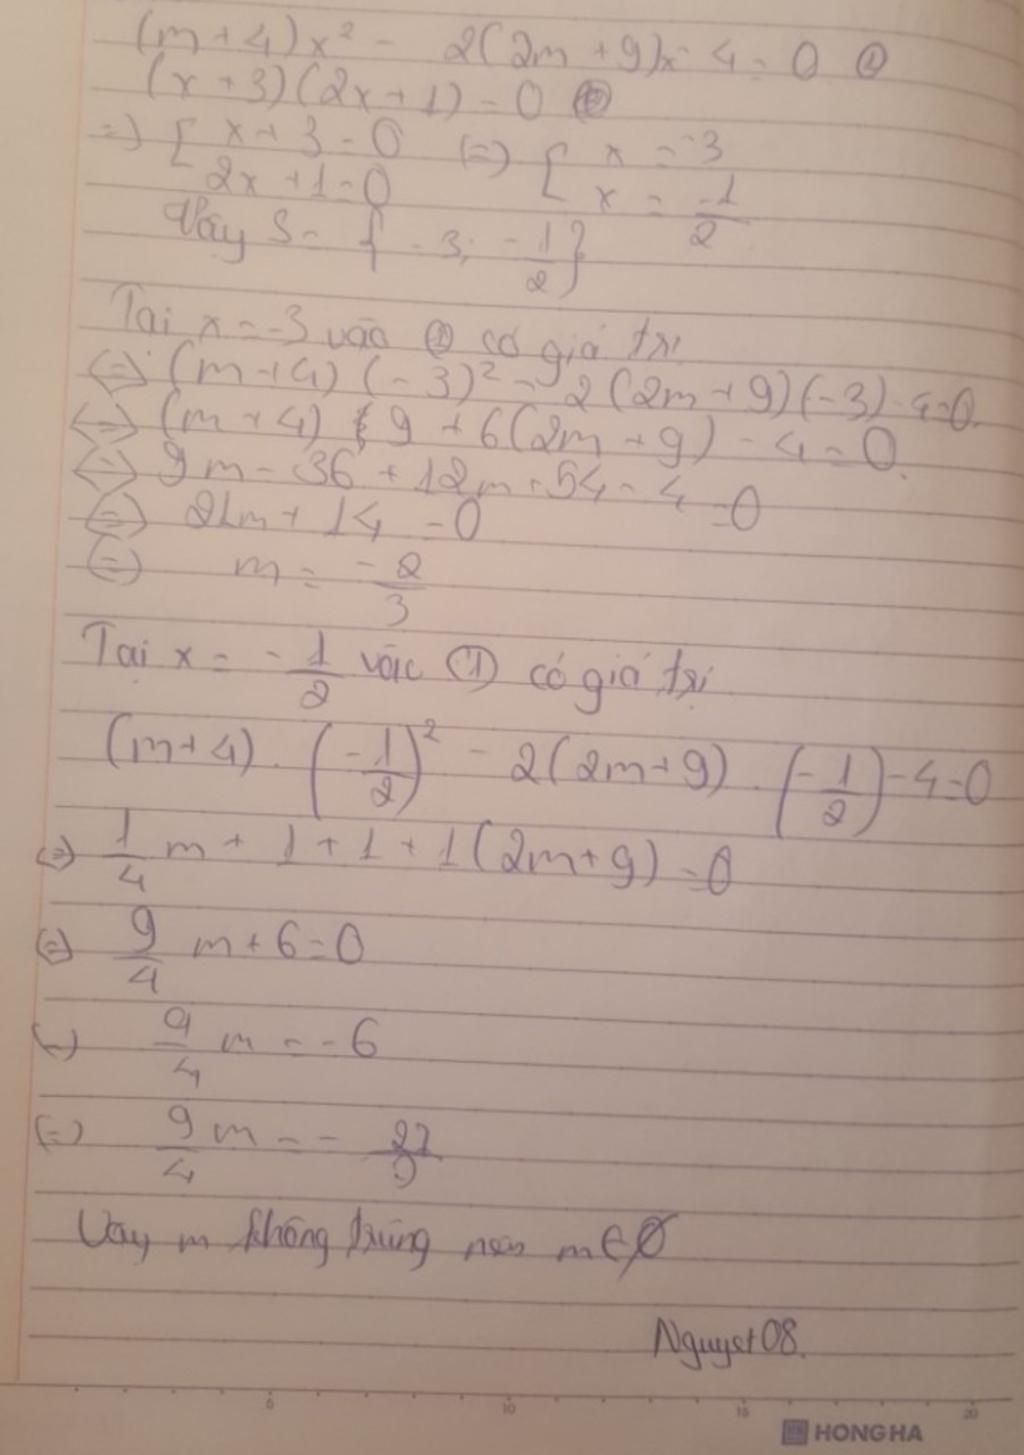 (m+4)x² - 2(2m+9)x - 4 = 0 ①
(x+3)(2x+1) = 0
=> [ x+3 = 0 (=) [ x = -3
2x+1 = 0 x = -1/2
Vậy S = { -3; -1/2 }
Tại x = -3 vào ① có giá trị
<=> (m+4)(-3)² - 2(2m+9)(-3) - 4 = 0
<=> (m+4) 9 + 6(2m+9) - 4 = 0
<=> 9m - 36 + 12m + 54 - 4 = 0
<=> 21m + 14 = 0
(=) m = -2/3
Tại x = -1/2 vào ① có giá trị
(m+4) . (-1/2)² - 2(2m+9) . (-1/2) - 4 = 0
(=) 1/4 m + 1 + 1 + 1(2m+9) = 0
(=) 9/4 m + 6 = 0
(=) 9/4 m = -6
(=) 9/4 m = -27/9
Vậy m không trùng nên m ∈ Ø
Nguyet08.
5 10 15 20
HONG HA